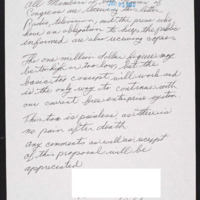 All Members of
Congress are receiving this letter
Radio, television, and the press who
have an obligation to keep the public
informed are also receiving copies.
The one million dollar figure may
be too high or too low, but the
basic concept will work and
is the only way to continue with
our current free enterprise system
This too is painless as there is
no pain after death
Any comments as well as receipt
of this proposal will be
appreciated